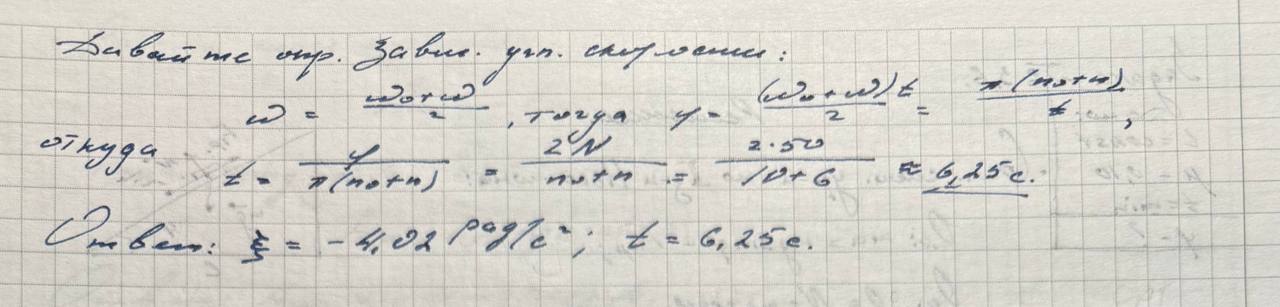 Давайте опр. завис. угл. скорости:
ω = (ω₀+ω)/2, тогда φ = (ω₀+ω)t/2 = π(n₀+n)/t,
откуда t = φ/π(n₀+n) = 2N/n₀+n = 2·50/10+6 ≈ 6,25 с.
Ответ: ξ = -4,02 рад/с²; t = 6,25 с.